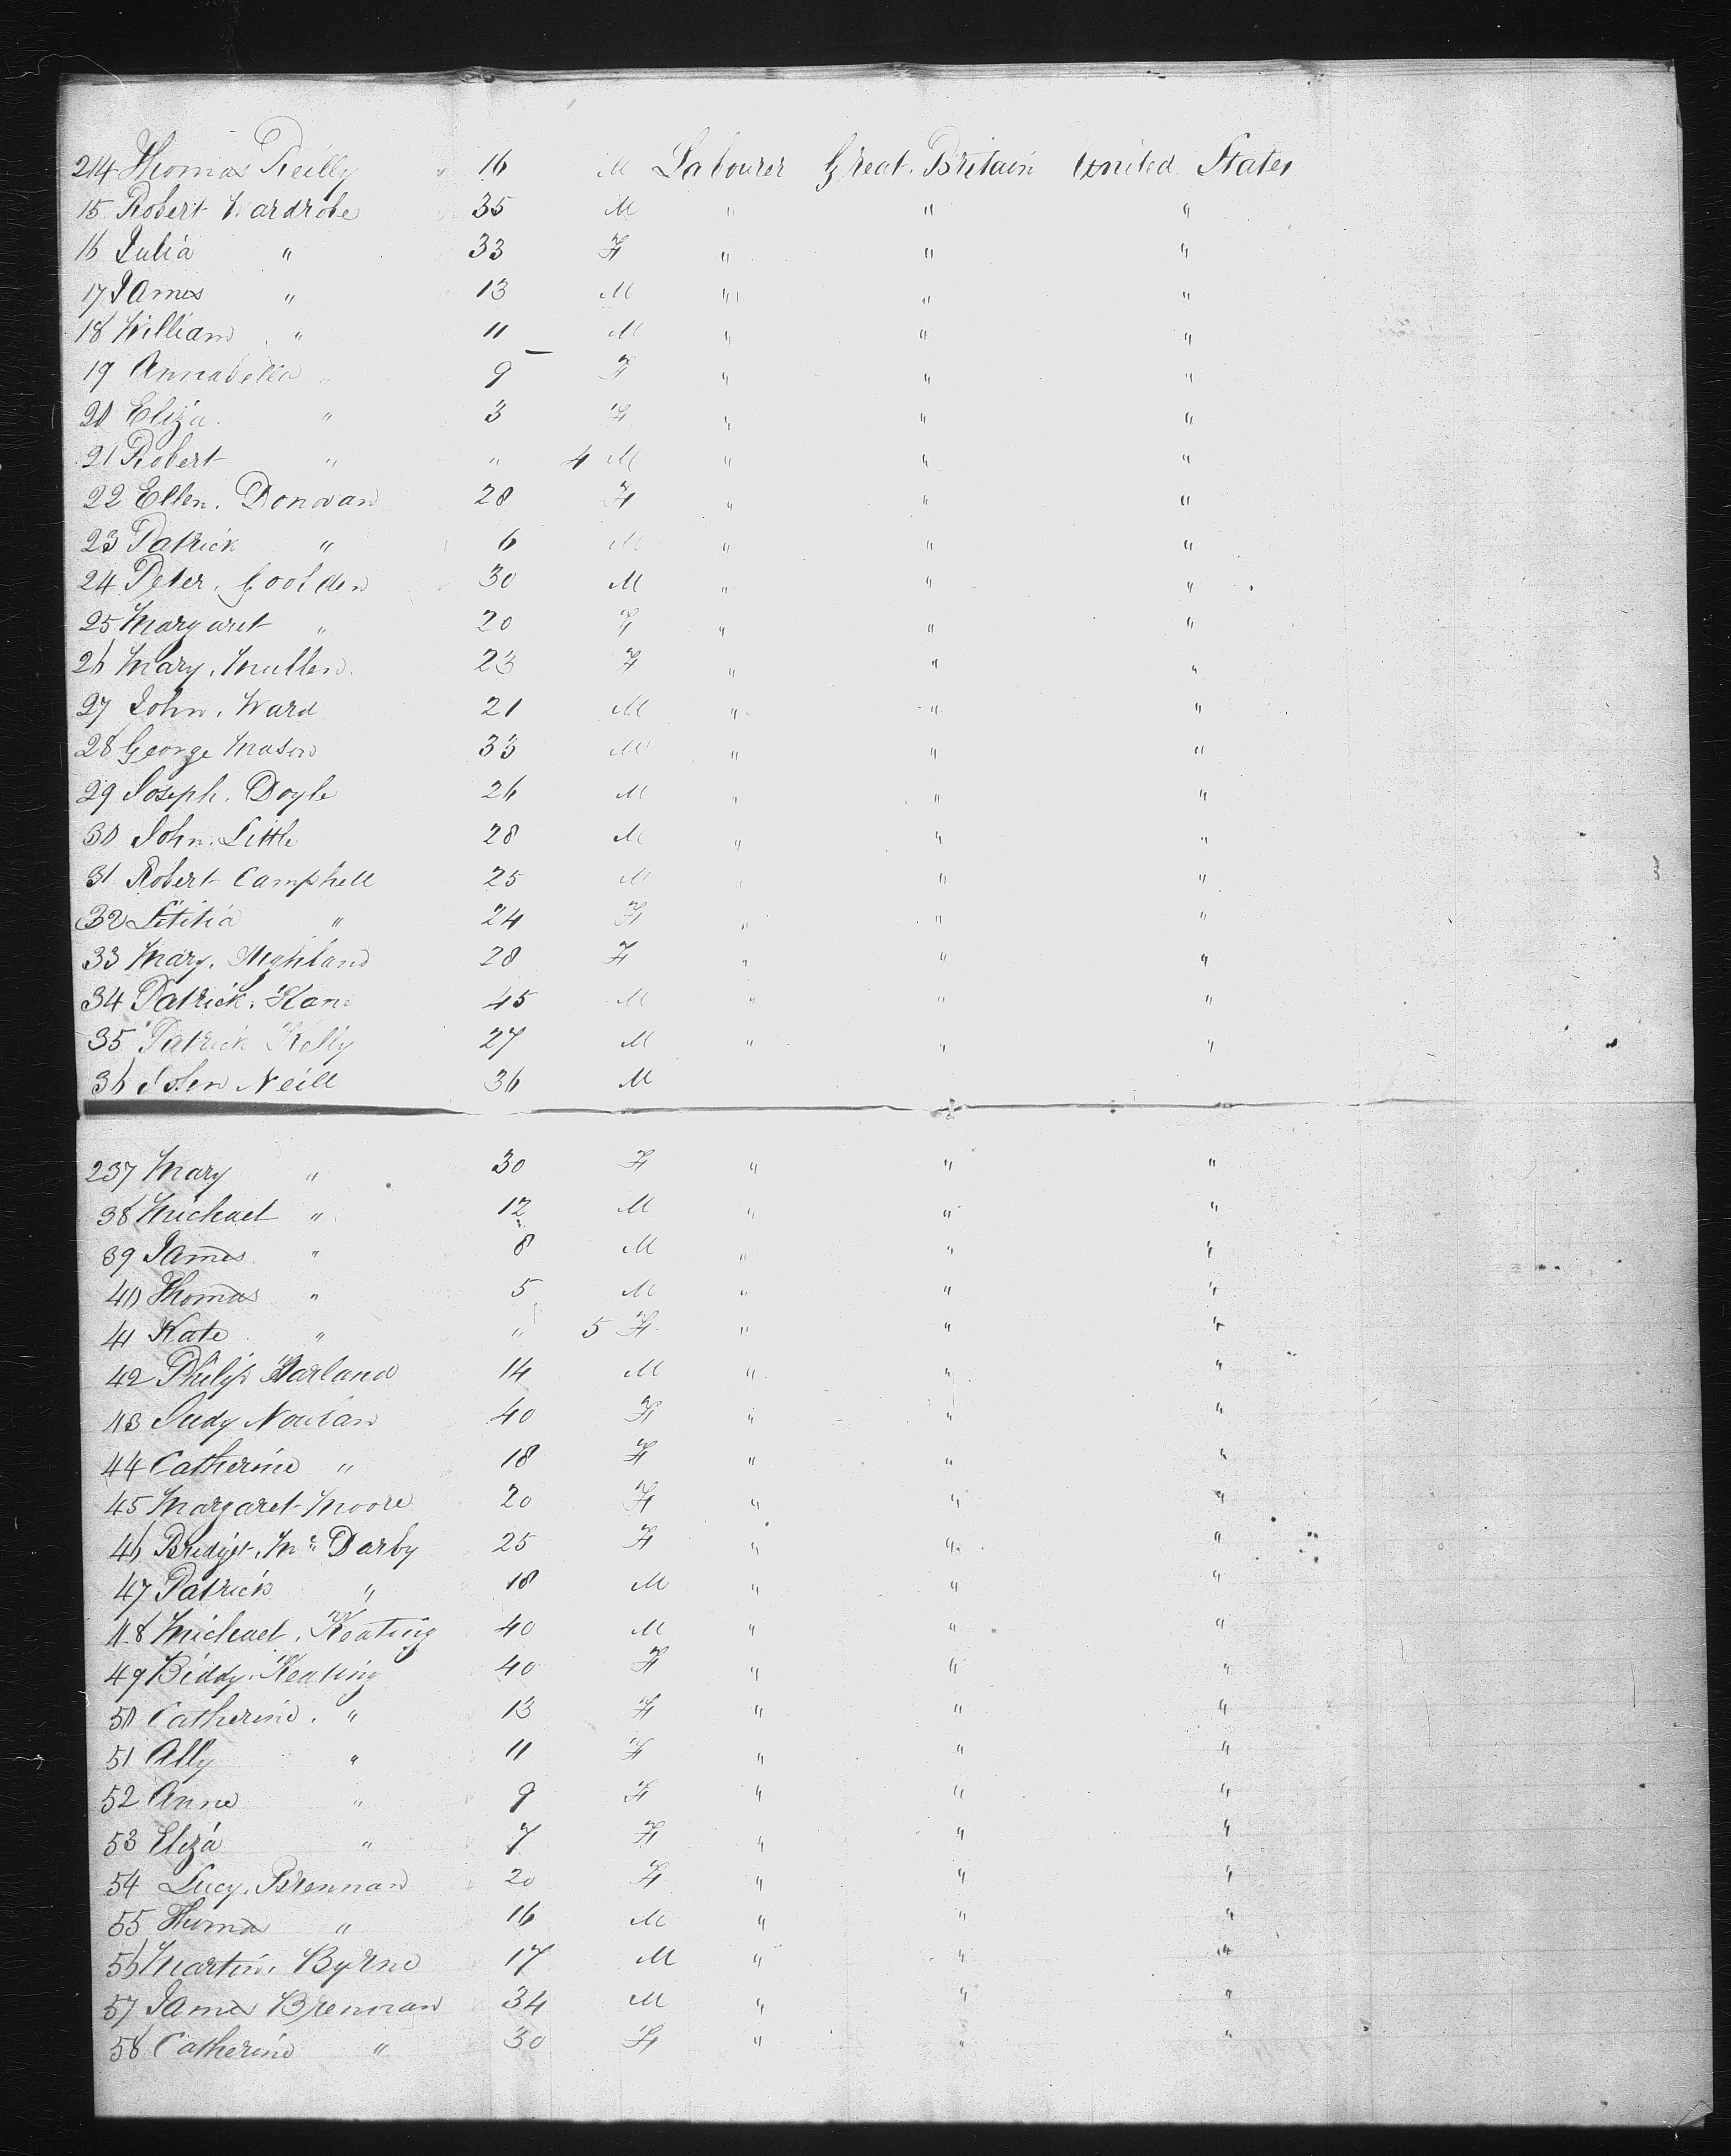 214 Thomas Reilly 16 M Labourer Great Britain United States
15 Robert Wardrobe 35 M " " "
16 Julia " 33 F " " "
17 James " 13 M " " "
18 William " 11 M " " "
19 Annabella " 9 F " " "
20 Eliza " 3 F " " "
21 Robert " " 4 M " " "
22 Ellen Donovan 28 F " " "
23 Patrick " 6 M " " "
24 Peter Goolden 30 M " " "
25 Margaret " 20 F " " "
26 Mary Mullen 23 F " " "
27 John Ward 21 M " " "
28 George Mason 33 M " " "
29 Joseph Doyle 26 M " " "
30 John Little 28 M " " "
31 Robert Campbell 25 M " " "
32 Letitia " 24 F " " "
33 Mary Highland 28 F " " "
34 Patrick Kane 45 M " " "
35 Patrick Kelly 27 M " " "
36 John Neill 36 M
237 Mary " 30 F " " "
38 Michael " 12 M " " "
39 James " 8 M " " "
40 Thomas " 5 M " " "
41 Kate " " 5 F " " "
42 Philip Harland 14 M " " "
43 Judy Noulan 40 F " " "
44 Catherine " 18 F " " "
45 Margaret Moore 20 F " " "
46 Bridget Mc Darby 25 F " " "
47 Patrick " 18 M " " "
48 Michael Keating 40 M " " "
49 Biddy Keating 40 F " " "
50 Catherine " 13 F " " "
51 Ally " 11 F " " "
52 Anne " 9 F " " "
53 Eliza " 7 F " " "
54 Lucy Brennan 20 F " " "
55 Thomas " 16 M " " "
56 Martin Byrne 17 M " " "
57 James Brennan 34 M " " "
58 Catherine " 30 F " " "